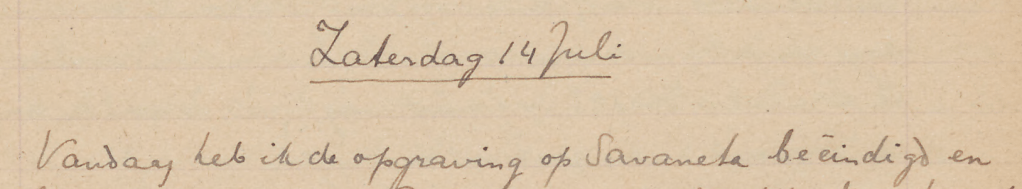 Zaterdag 14 Juli
Vandaag heb ik de opgraving op Savaneta beëindigd en